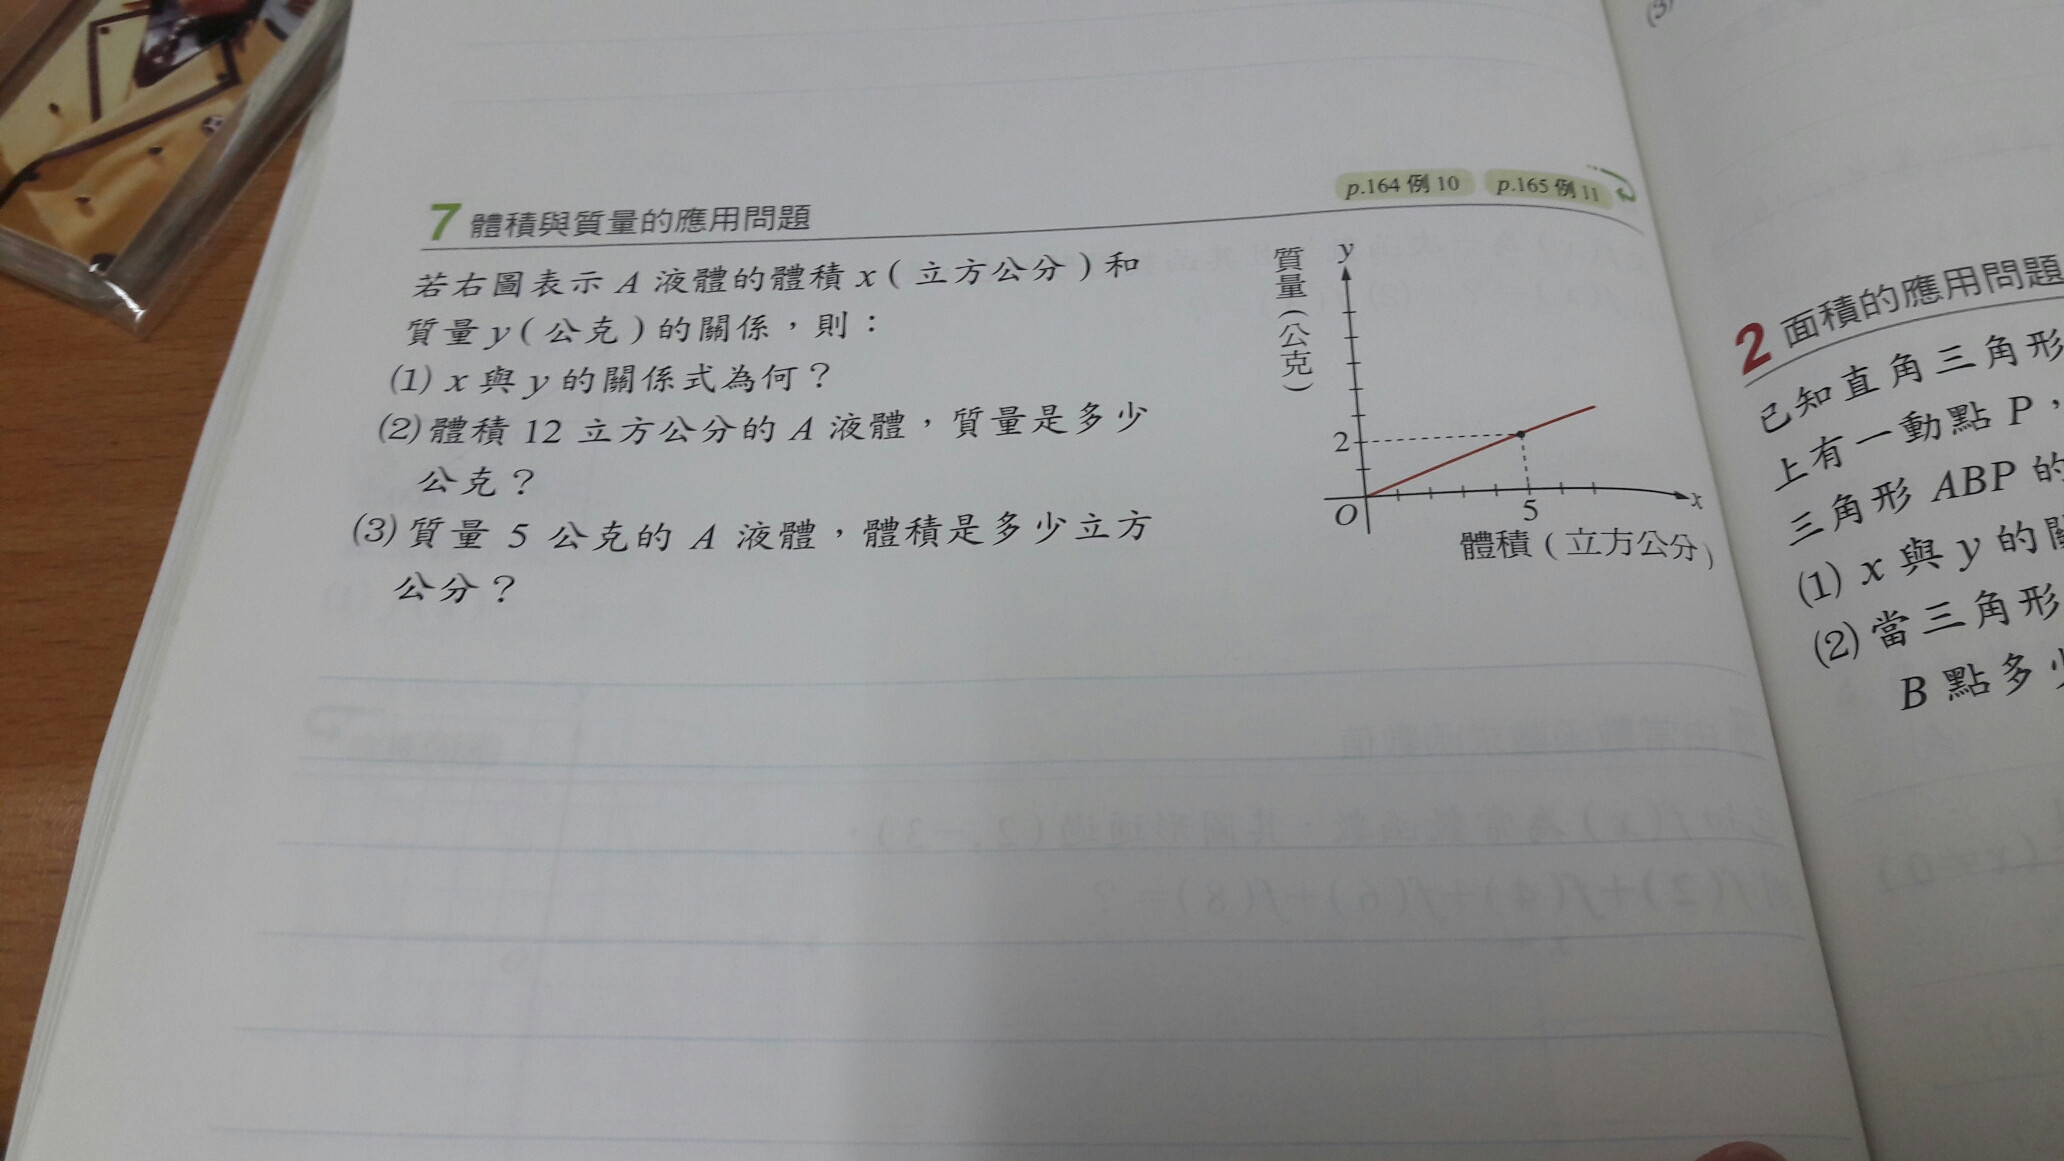 p.164 例 10 p.165 例 11
7 體積與質量的應用問題
若右圖表示 A 液體的體積 x ( 立方公分 ) 和
質量 y ( 公克 ) 的關係，則：
(1) x 與 y 的關係式為何？
(2) 體積 12 立方公分的 A 液體，質量是多少
公克？
(3) 質量 5 公克的 A 液體，體積是多少立方
公分？
質量(公克)
y
2
O
5
x
體積 ( 立方公分 )
(3)
2 面積的應用問題
已知直角三角形
上有一動點 P，
三角形 ABP 的
(1) x 與 y 的關
(2) 當三角形
B 點多少